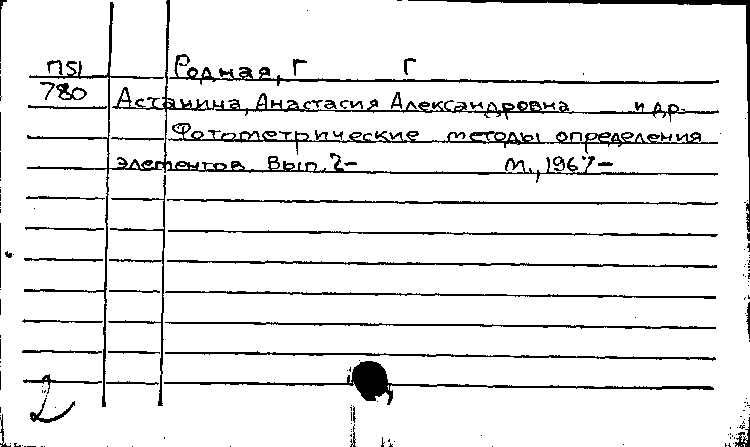 П51 Родная, Г Г
780 Астанина, Анастасия Александровна и др.
Фотометрические методы определения
элементов. Вып. 2- М., 1967-
2